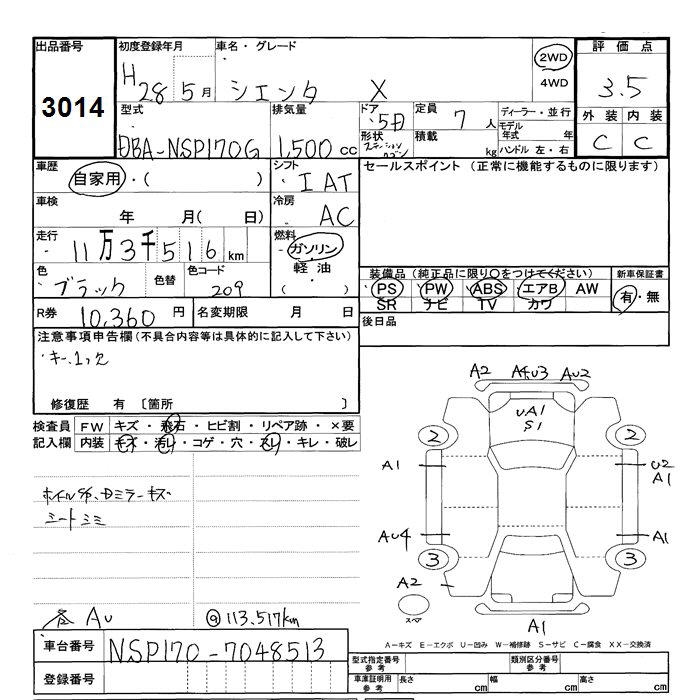 出品番号
3014
初度登録年月
H 28 5月
車名・グレード
シエンタ X
2WD
4WD
評価点
3.5
外装 内装
C C
型式
DBA-NSP170G
排気量
1,500 cc
ドア
5D
形状
ステーション
ワゴン
定員
7 人
積載
kg
ディーラー・並行
モデル
年式 年
ハンドル 左・右
車歴
自家用・( )
シフト
I AT
セールスポイント (正常に機能するものに限ります)
車検
年 月( 日)
冷房
AC
走行
11万3千516 km
燃料
ガソリン
軽油
( )
色
ブラック
色替
色コード
209
装備品(純正品に限り○をつけてください)
新車保証書
PS PW ABS エアB AW
SR ナビ TV カワ
有・無
R券 10,360 円
名変期限 月 日
後日品
注意事項申告欄(不具合内容等は具体的に記入して下さい)
・キー1ツ
修復歴 有 〔箇所 〕
検査員
記入欄
FW キズ・飛石・ヒビ割・リペア跡・×要
内装 キズ・汚レ・コゲ・穴・スレ・キレ・破レ
ホイルS傷、Dミラーキズ
シートシミ
各 AU
@113.517km
A2 A4U3 AU2
UA1
S1
2 2
A1
U2
A1
AU4
A1
3 3
A2
スペア
A1
A-キズ E-エクボ U-凹み W-補修跡 S-サビ C-腐食 XX-交換済
車台番号
NSP170-7048513
登録番号
型式指定番号
参考
類別区分番号
参考
車庫証明用
参考
長さ cm
幅 cm
高さ cm